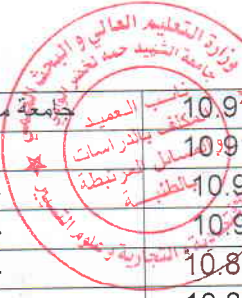 وزارة التعليم العالي والبحث العلمي
جامعة الشهيد حمه لخضر
نائب العميد
مكلف بالدراسات
والمسائل المرتبطة
بالطلبة
التجارية وعلوم التسيير
جامعة
10.9
10.9
10.9
10.9
10.8